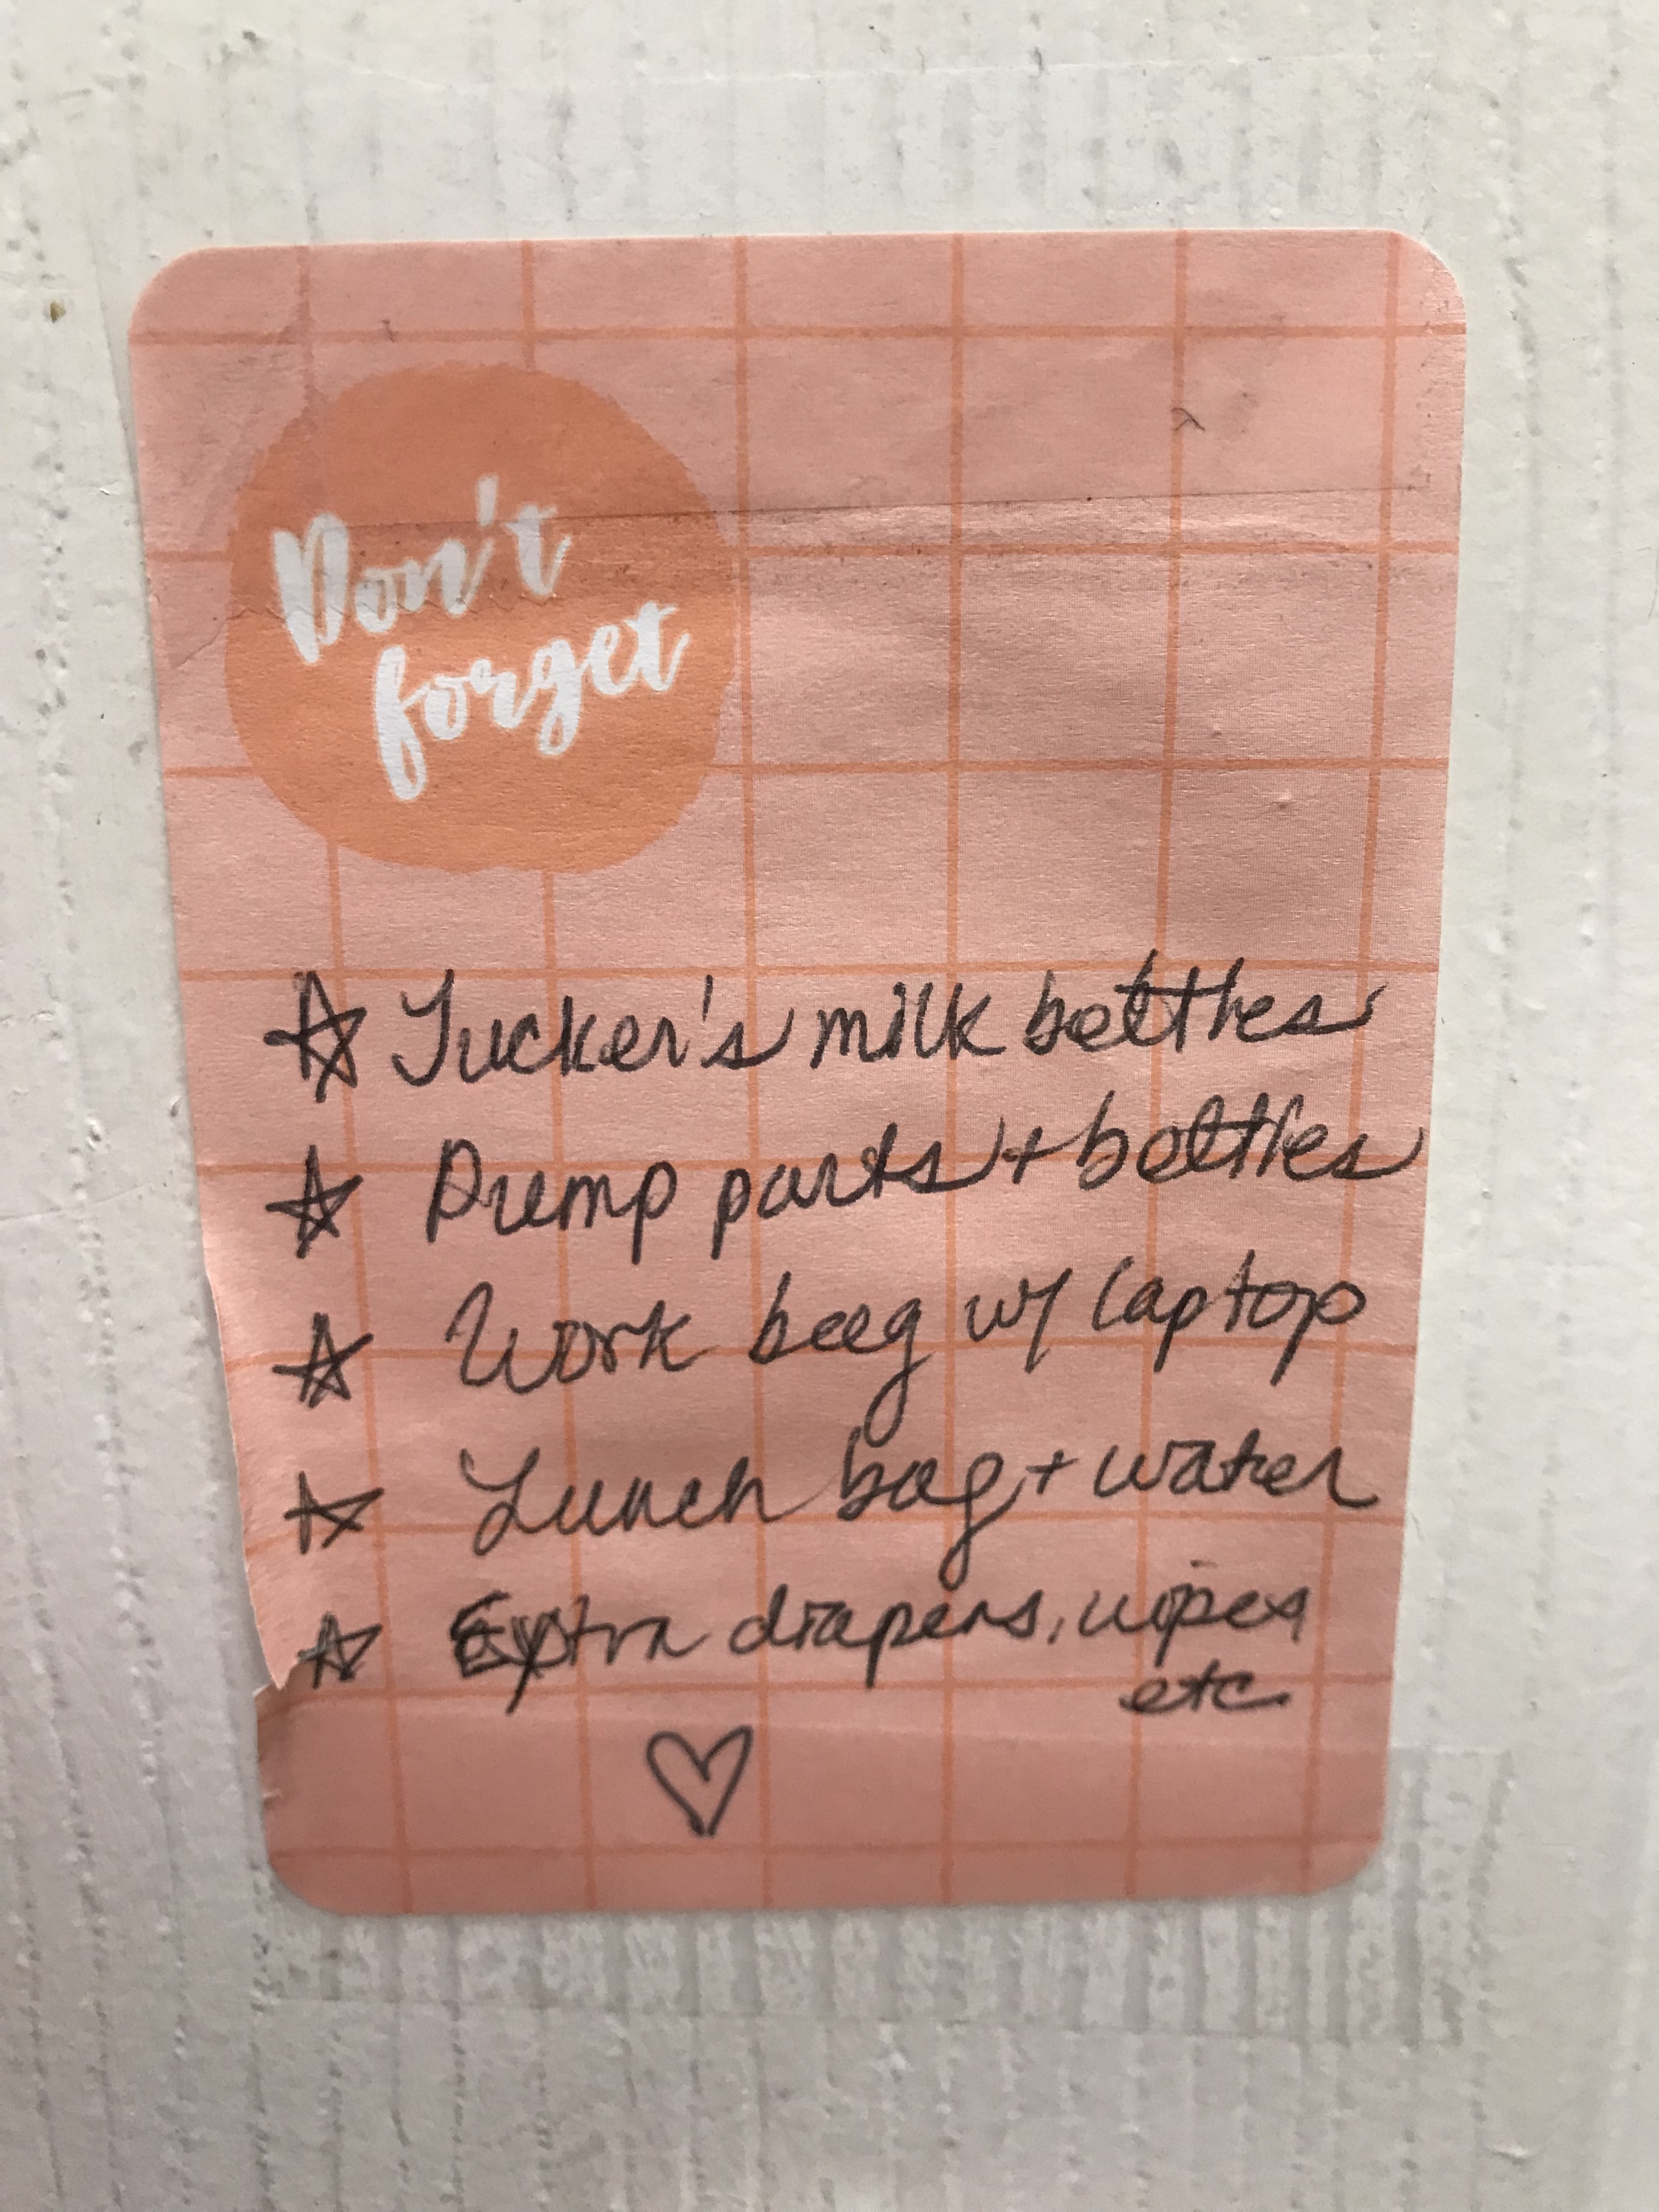 Don't
forget
☆ Tucker's milk bottles
☆ Pump parts + bottles
☆ Work bag w/ laptop
☆ Lunch bag + water
☆ Extra diapers, wipes
etc
♡